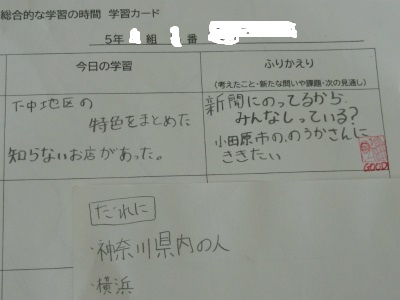 総合的な学習の時間 学習カード
5年 組 番
今日の学習
ふりかえり
(考えたこと・新たな問いや課題・次の見通し)
下中地区の
特色をまとめた
知らないお店があった。
新聞にのってるから
みんなしっている?
小田原市の、のうかさんに
ききたい
GOOD
だれに
・神奈川県内の人
・横浜